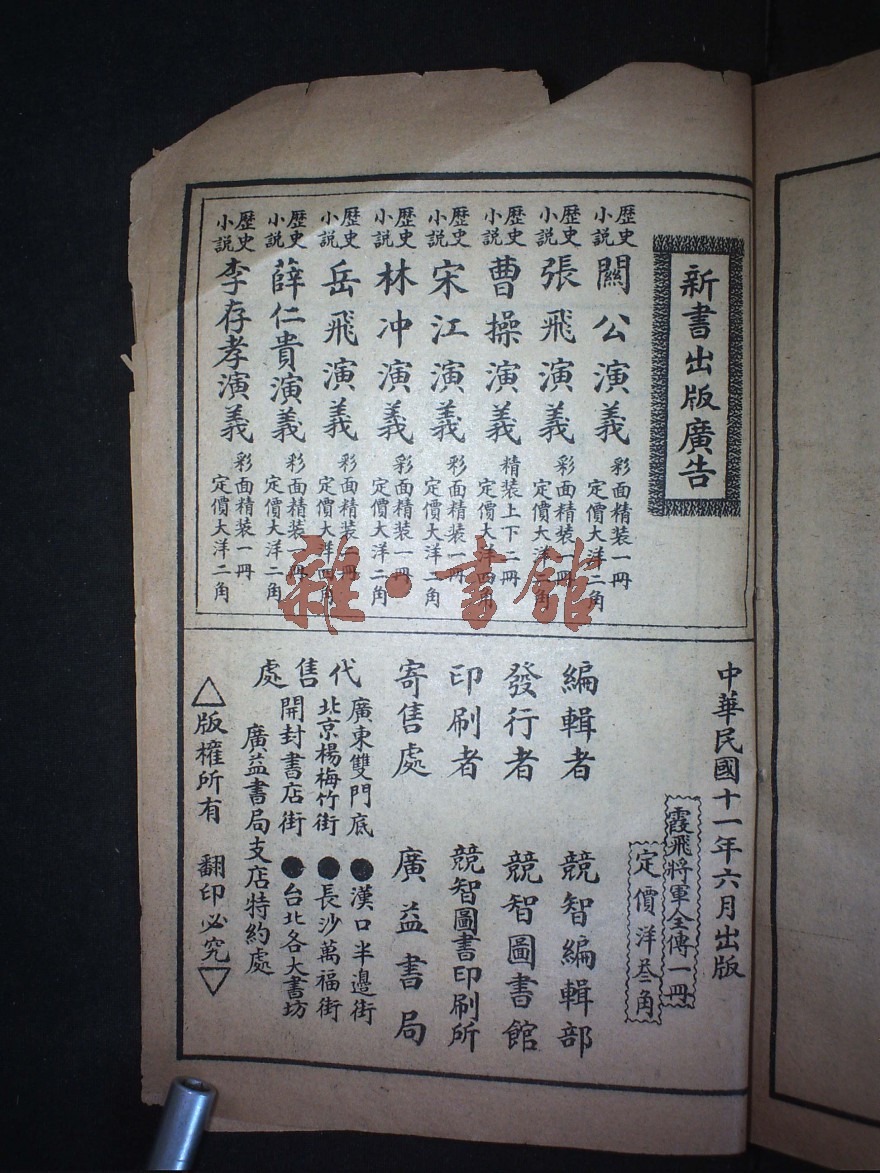 新書出版廣告
歷史小說 關公演義 彩面精裝一冊 定價大洋二角
歷史小說 張飛演義 彩面精裝一冊 定價大洋二角
歷史小說 曹操演義 精裝上下二冊 定價大洋四角
歷史小說 宋江演義 彩面精裝一冊 定價大洋二角
歷史小說 林冲演義 彩面精裝一冊 定價大洋二角
歷史小說 岳飛演義 彩面精裝二冊 定價大洋四角
歷史小說 薛仁貴演義 彩面精裝一冊 定價大洋二角
歷史小說 李存孝演義 彩面精裝一冊 定價大洋二角
雜·書館
中華民國十一年六月出版
霞飛將軍全傳一冊
定價洋叁角
編輯者 競智編輯部
發行者 競智圖書館
印刷者 競智圖書印刷所
寄售處 廣益書局
代售處
廣東雙門底●漢口半邊街
北京楊梅竹街●長沙萬福街
開封書店街●台北各大書坊
廣益書局支店特約處
△版權所有 翻印必究▽